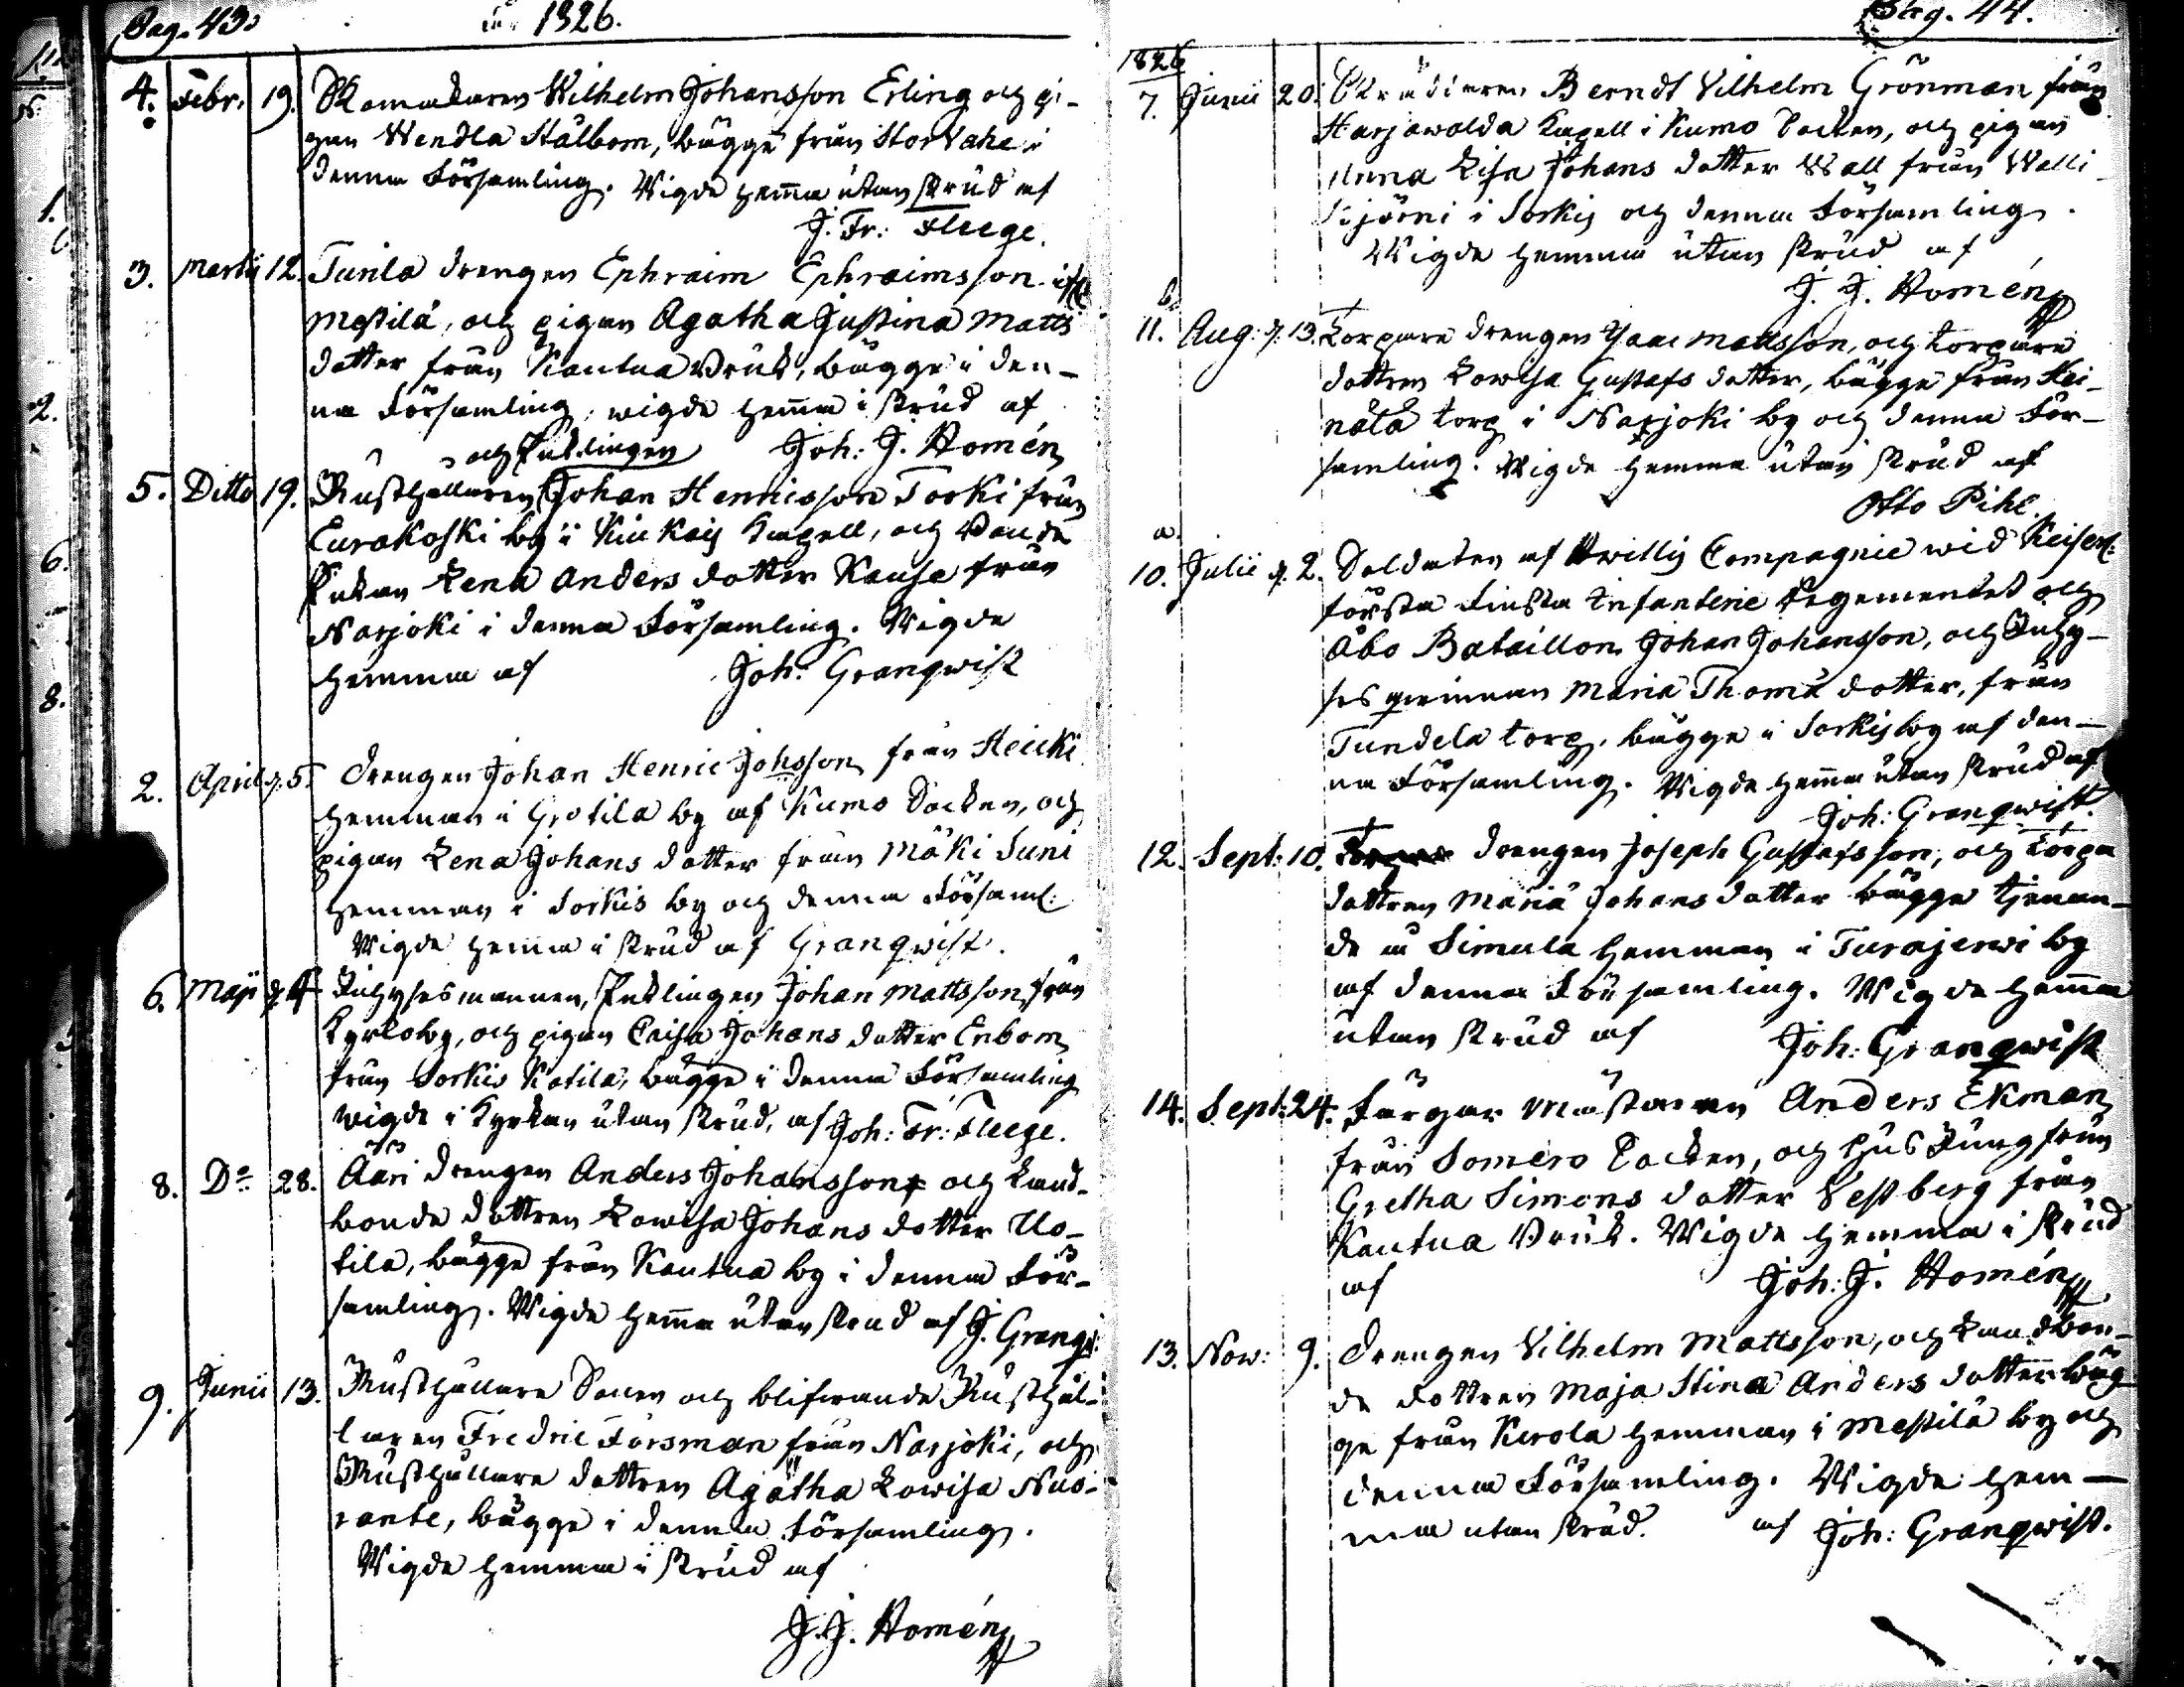 Pag. 43.
år 1826.
4. Febr. 19. Skomakaren Wilhelm Johansson Erling och pi-
gan Wendla Stålbom, bägge från Stor Vahe i
denna Församling. Vigde hem̄a utan skrud af
J. Fr: Fleege.
3. Martij 12. Tunla drengen Ephraim Ephraimsson
Mestilä, och pigan Agatha Justina Matts
dotter från Kautua Bruk, bägge i den-
na Församling, wigde hem̄a i skrud af
Joh: J. Homén
och Enklingen
5. Ditto 19. Rusthållaren Johan Henricsson Torki från
Eurakoski by i Kiukais Kapell, och Bonde
Enkan Lena Anders dotter Kause från
Narjoki i denna Församling. Vigde
hemma af Joh: Granqwist
2. April d. 5. Drengen Johan Henric Johsson från Heicki
hemman i Grotila by af Kumo Socken, och
pigan Lena Johans dotter från Mäki Juni
hemman i Sorkis by och denna Församl:
Vigde hemma i skrud af Granqwist.
6. Maji d. Inhysesmannen, Enklingen Johan Mattsson från
Kyrkoby, och pigan Caisa Johans dotter Enbom
från Sorkis Kotila, bägge i denna Församling
wigde i Kyrkan utan skrud, af Joh: Fr: Fleege.
8. Do 28. Äari drengen Anders Johansson och Land-
bonde dottren Lowisa Johans dotter Uo-
tila, bägge från Kautua by i denna För-
samling. Vigde hem̄a utan skrud af J. Granq:
9. Junii 13. Rusthållare Sonen och blifwande Rusthål-
laren Fredric Forsman från Narjoki, och
Rusthållare dottren Agatha Lowisa Nuo-
rante, bägge i denna församling.
Vigde hemma i skrud af
J. J. Homén
Pag. 44.
1826
7. Junii 20. Skräddaren Berndt Vilhelm Grönman från
Harjawalda Kapell i Kumo Socken, och pigan
Anna Lisa Johans dotter Wall från Walli
Björni i Sorkis och denna Församling.
Vigde hemma utan skrud af
J. J. Homén
b.
11. Aug: d. 13. Torpare drengen Isaac Mattsson, och torpare
dottren Lowisa Gustafs dotter, bägge från Hei-
nota torp i Narjoki by och denna För-
samling. Vigde hemma utan skrud af
Otto Pihl.
a.
10. Julii d. 2. Soldaten af Compagnie wid Keiserl:
första Finska Infanterie Regementet och
Åbo Bataillon Johan Johansson, och Inhy-
ses qwinnan Maria Thomæ dotter, från
Tundela torp, bägge i Sorkis by af den-
na Församling. Vigde hem̄a utan skrud af
Joh: Granqwist.
12. Sept: 10. drengen Joseph Gustafsson, och Torpa
dottren Maria Johans dotter bägge tjenan-
de å Simula hemman i Turajerwi by
af denna Församling. Vigde hem̄a
utan skrud af Joh: Granqwist
14. Sept: 24. Färgar Mästaren Anders Ekman
från Somero Socken, och Hus Jungfrun
Gretha Simons dotter Vestberg från
Kautua Bruk. Vigde hemma i skrud
af Joh: J. Homén
13. Now: 9. Drengen Vilhelm Mattsson, och Landbon-
de dottren Maja Stina Anders dotter bäg-
ge från Kerola hemman i Mestilä by och
denna Församling. Vigde hem-
ma utan skrud. af Joh: Granqwist.